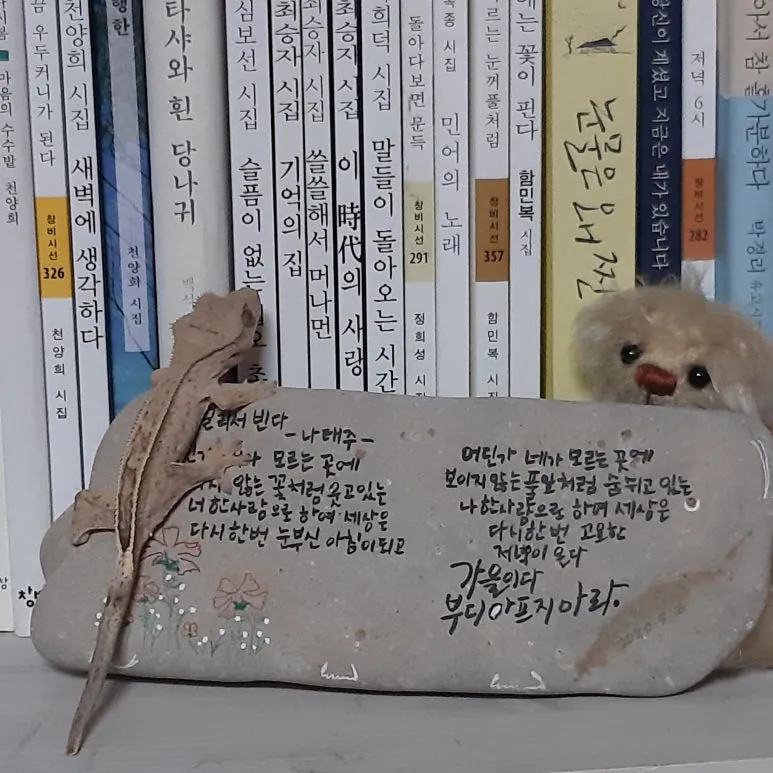 마음의 수수밭 천양희
끔 우두커니가 된다
창비시선
326
천양희 시집
천양희 시집 새벽에 생각하다
행한
천양희 시집
타샤와 흰 당나귀
심보선 시집 슬픔이 없는
최승자 시집 기억의 집
최승자 시집 쓸쓸해서 머나먼
최승자 시집 이 時代의 사랑
희덕 시집 말들이 돌아오는 시간
돌아다보면 문득
창비시선
291
정희성 시집
시집 민어의 노래
르는 눈꺼풀처럼
창비시선
357
함민복 시집
꽃이 핀다 함민복 시집
눈물은 왜 짠
당신이 계셨고 지금은 내가 있습니다
저녁 6시
창비시선
282
가분하다
박경리
서 빈다
-나태주-
모르는 곳에
않는 꽃처럼 웃고 있는
너 한사람으로 하여 세상은
다시 한번 눈부신 아침이 되고
어딘가 네가 모르는 곳에
보이지 않는 풀잎처럼 숨쉬고 있는
나 한사람으로 하여 세상은
다시 한번 고요한
저녁이 온다
가을이다
부디 아프지 아라.